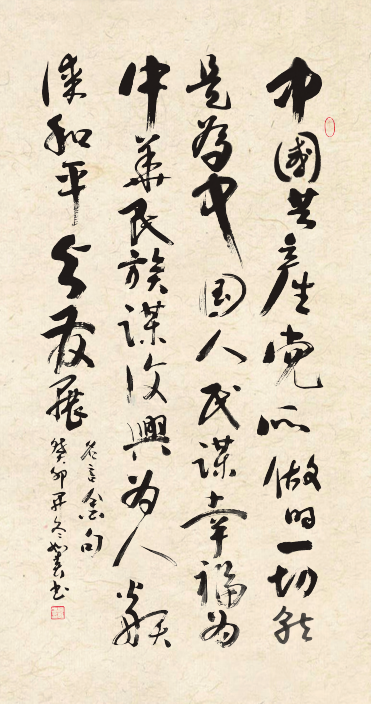 中國共產党所做的一切就
是為中国人民謀幸福为
中華民族謀復興为人類
謀和平与發展
名言金句
癸卯 冬 书